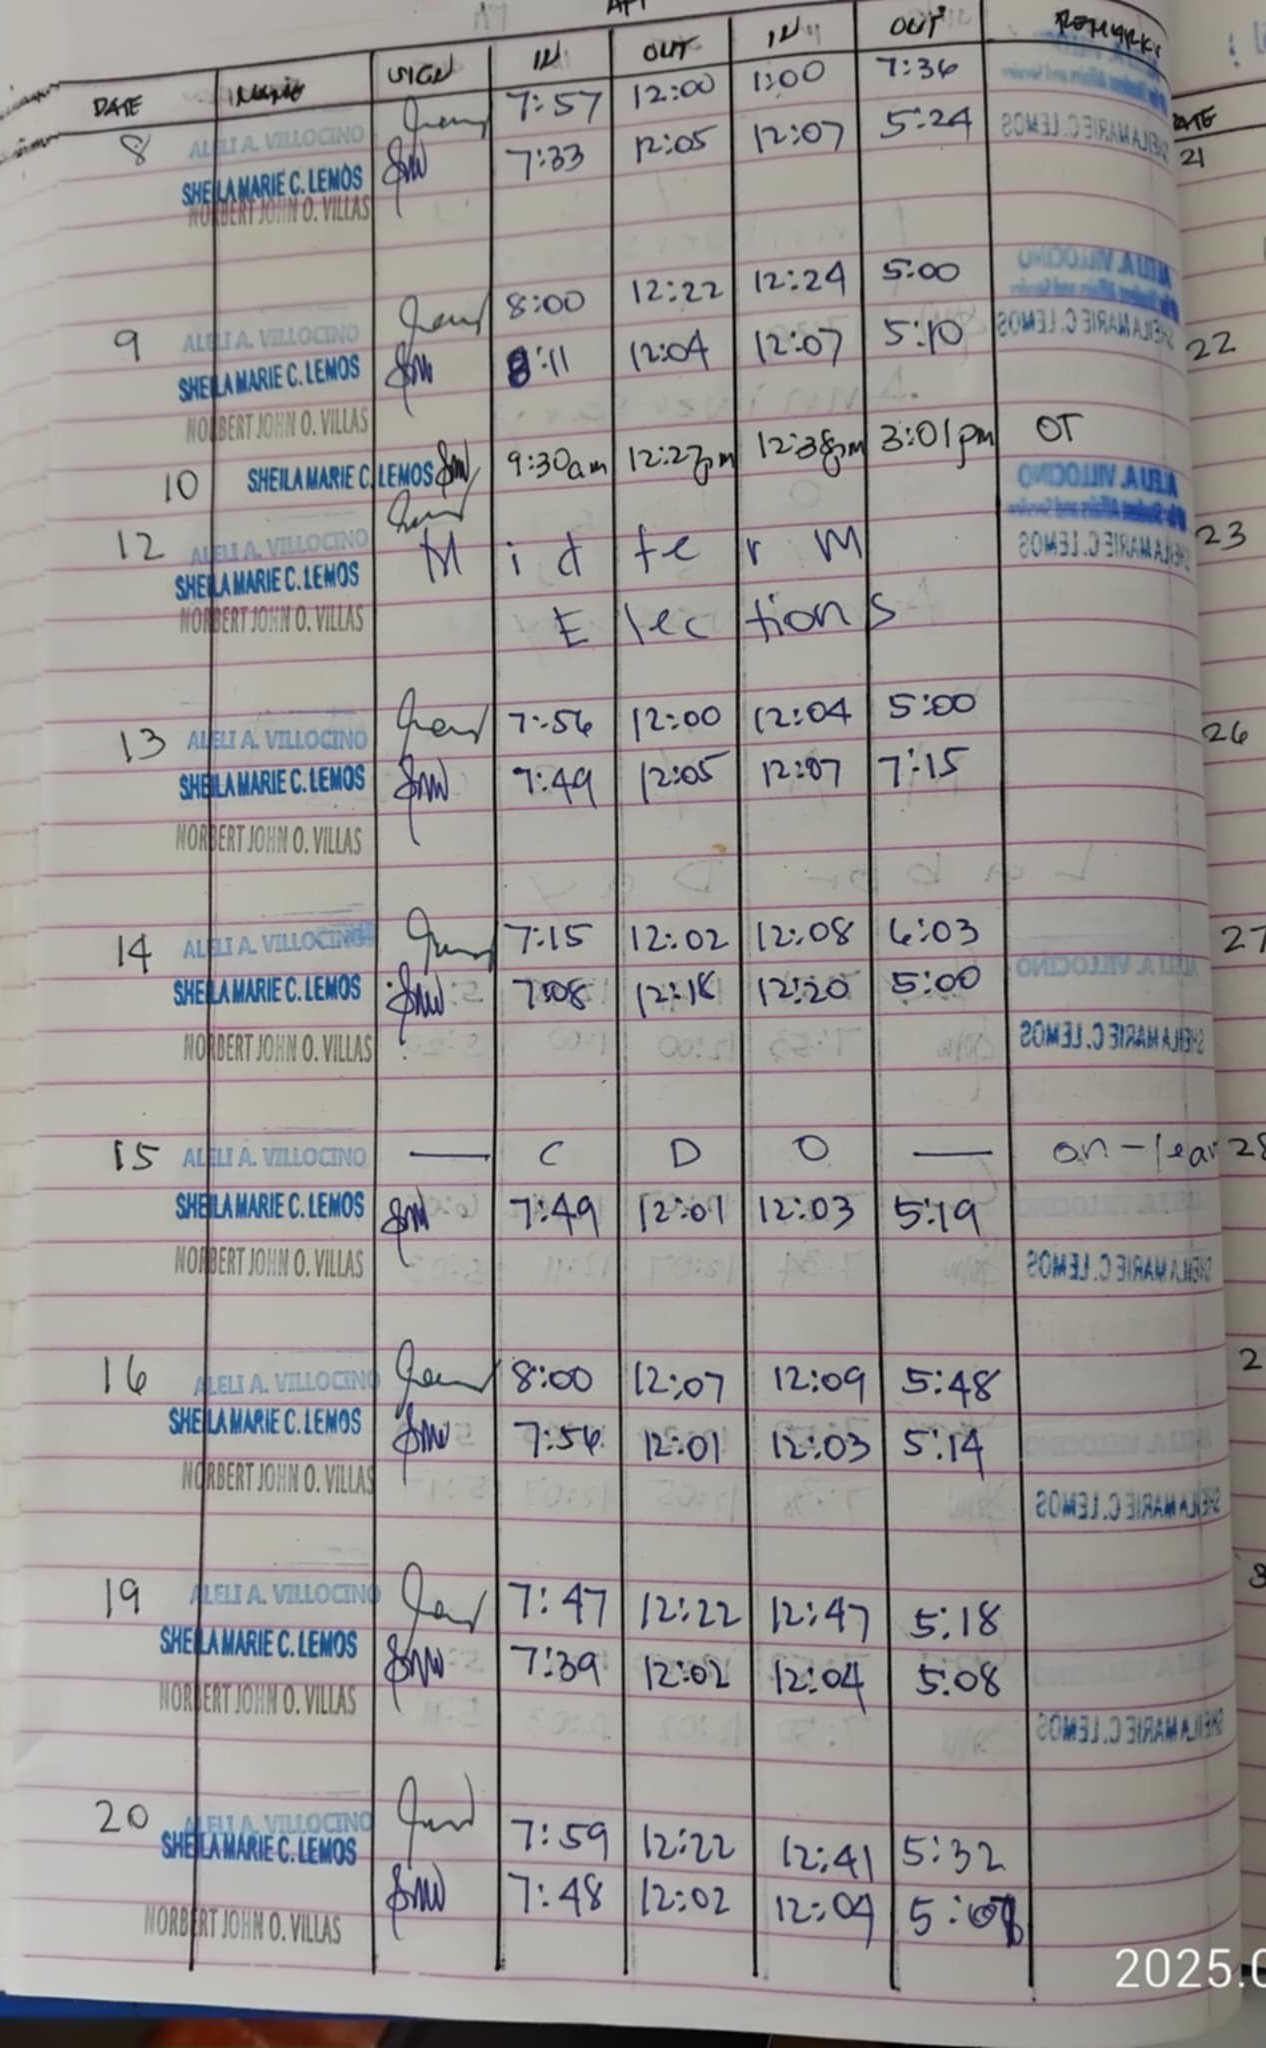 DATE NAME SIGN IN OUT IN OUT REMARKS
8 ALELI A. VILLOCINO 7:57 12:00 1:00 7:36
SHEILA MARIE C. LEMOS 7:33 12:05 12:07 5:24
NORBERT JOHN O. VILLAS
9 ALELI A. VILLOCINO 8:00 12:22 12:24 5:00
SHEILA MARIE C. LEMOS 8:11 12:04 12:07 5:10
NORBERT JOHN O. VILLAS
10 SHEILA MARIE C. LEMOS 9:30am 12:27pm 12:38pm 3:01pm OT
12 ALELI A. VILLOCINO Midterm
SHEILA MARIE C. LEMOS
NORBERT JOHN O. VILLAS Elections
13 ALELI A. VILLOCINO 7:56 12:00 12:04 5:00
SHEILA MARIE C. LEMOS 7:49 12:05 12:07 7:15
NORBERT JOHN O. VILLAS
14 ALELI A. VILLOCINO 7:15 12:02 12:08 6:03
SHEILA MARIE C. LEMOS 7:08 12:18 12:20 5:00
NORBERT JOHN O. VILLAS
15 ALELI A. VILLOCINO — C D O — on-leav
SHEILA MARIE C. LEMOS 7:49 12:01 12:03 5:19
NORBERT JOHN O. VILLAS
16 ALELI A. VILLOCINO 8:00 12:07 12:09 5:48
SHEILA MARIE C. LEMOS 7:56 12:01 12:03 5:14
NORBERT JOHN O. VILLAS
19 ALELI A. VILLOCINO 7:47 12:22 12:47 5:18
SHEILA MARIE C. LEMOS 7:39 12:02 12:04 5:08
NORBERT JOHN O. VILLAS
20 ALELI A. VILLOCINO 7:59 12:22 12:41 5:32
SHEILA MARIE C. LEMOS 7:48 12:02 12:04
NORBERT JOHN O. VILLAS
21
22
23
26
27
28
2025.0